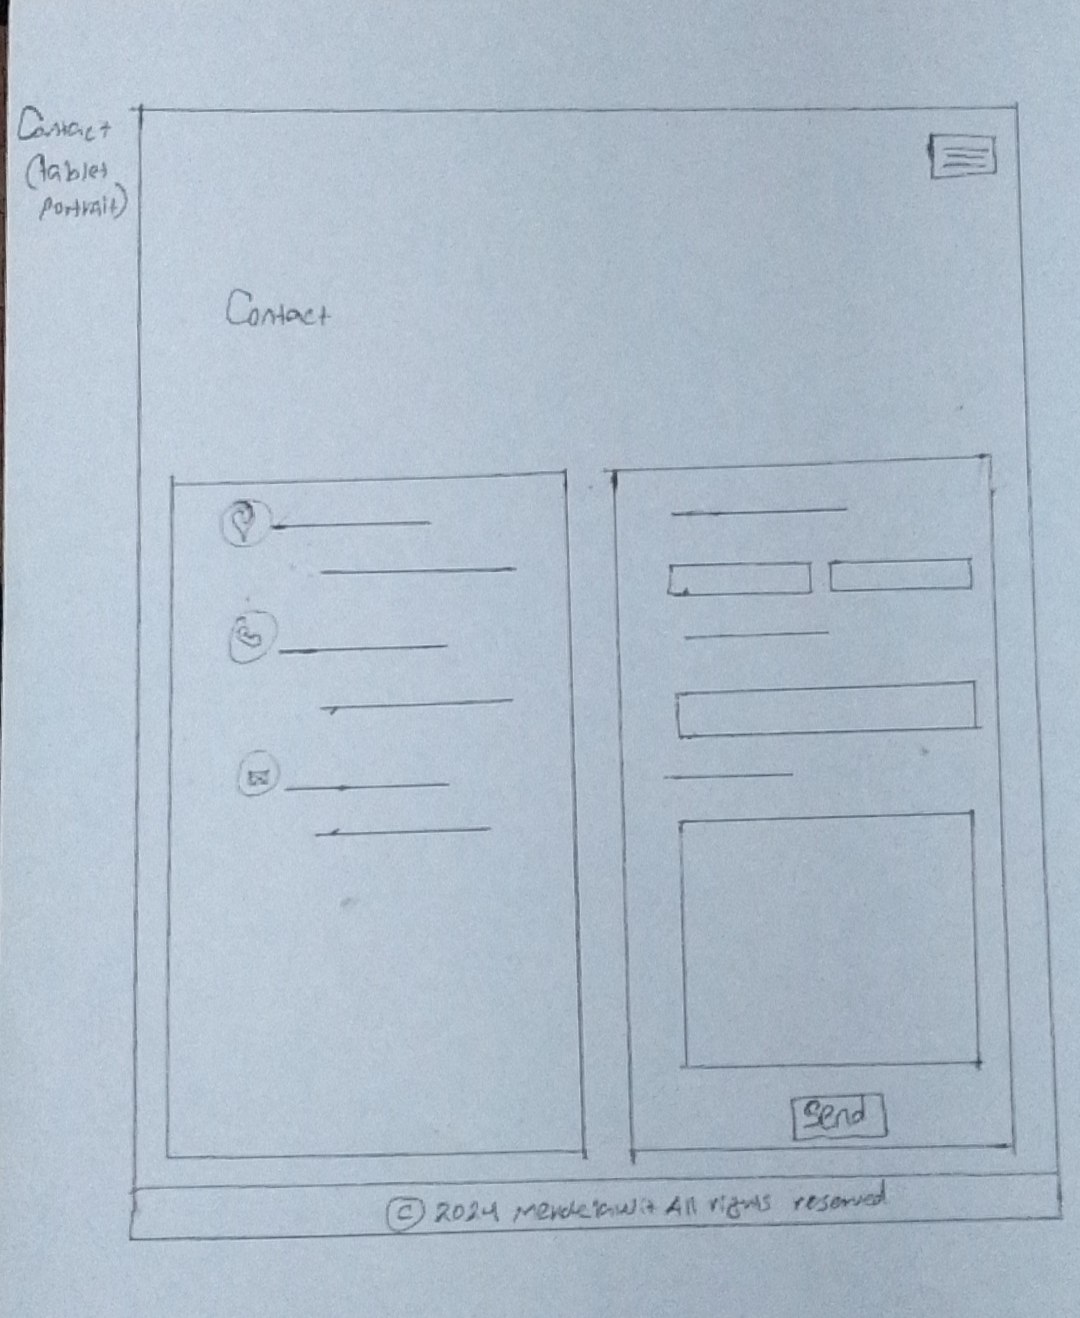 Contact
(tablet
portrait)
Contact
Send
© 2024 All rights reserved